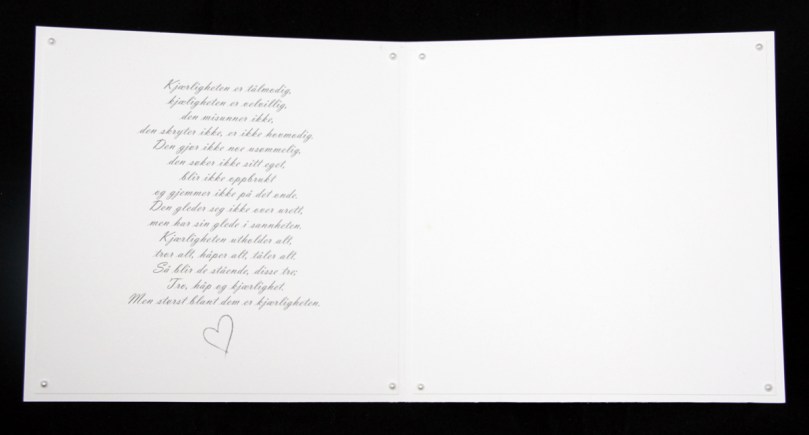 Kjærligheten er tålmodig,
kjærligheten er velvillig,
den misunner ikke,
den skryter ikke, er ikke hovmodig.
Den gjør ikke noe usømmelig,
den søker ikke sitt eget,
blir ikke oppbrakt
og gjemmer ikke på det onde.
Den gleder seg ikke over urett,
men har sin glede i sannheten.
Kjærligheten utholder alt,
tror alt, håper alt, tåler alt.
Så blir de stående, disse tre;
Tro, håp og kjærlighet.
Men størst blant dem er kjærligheten.